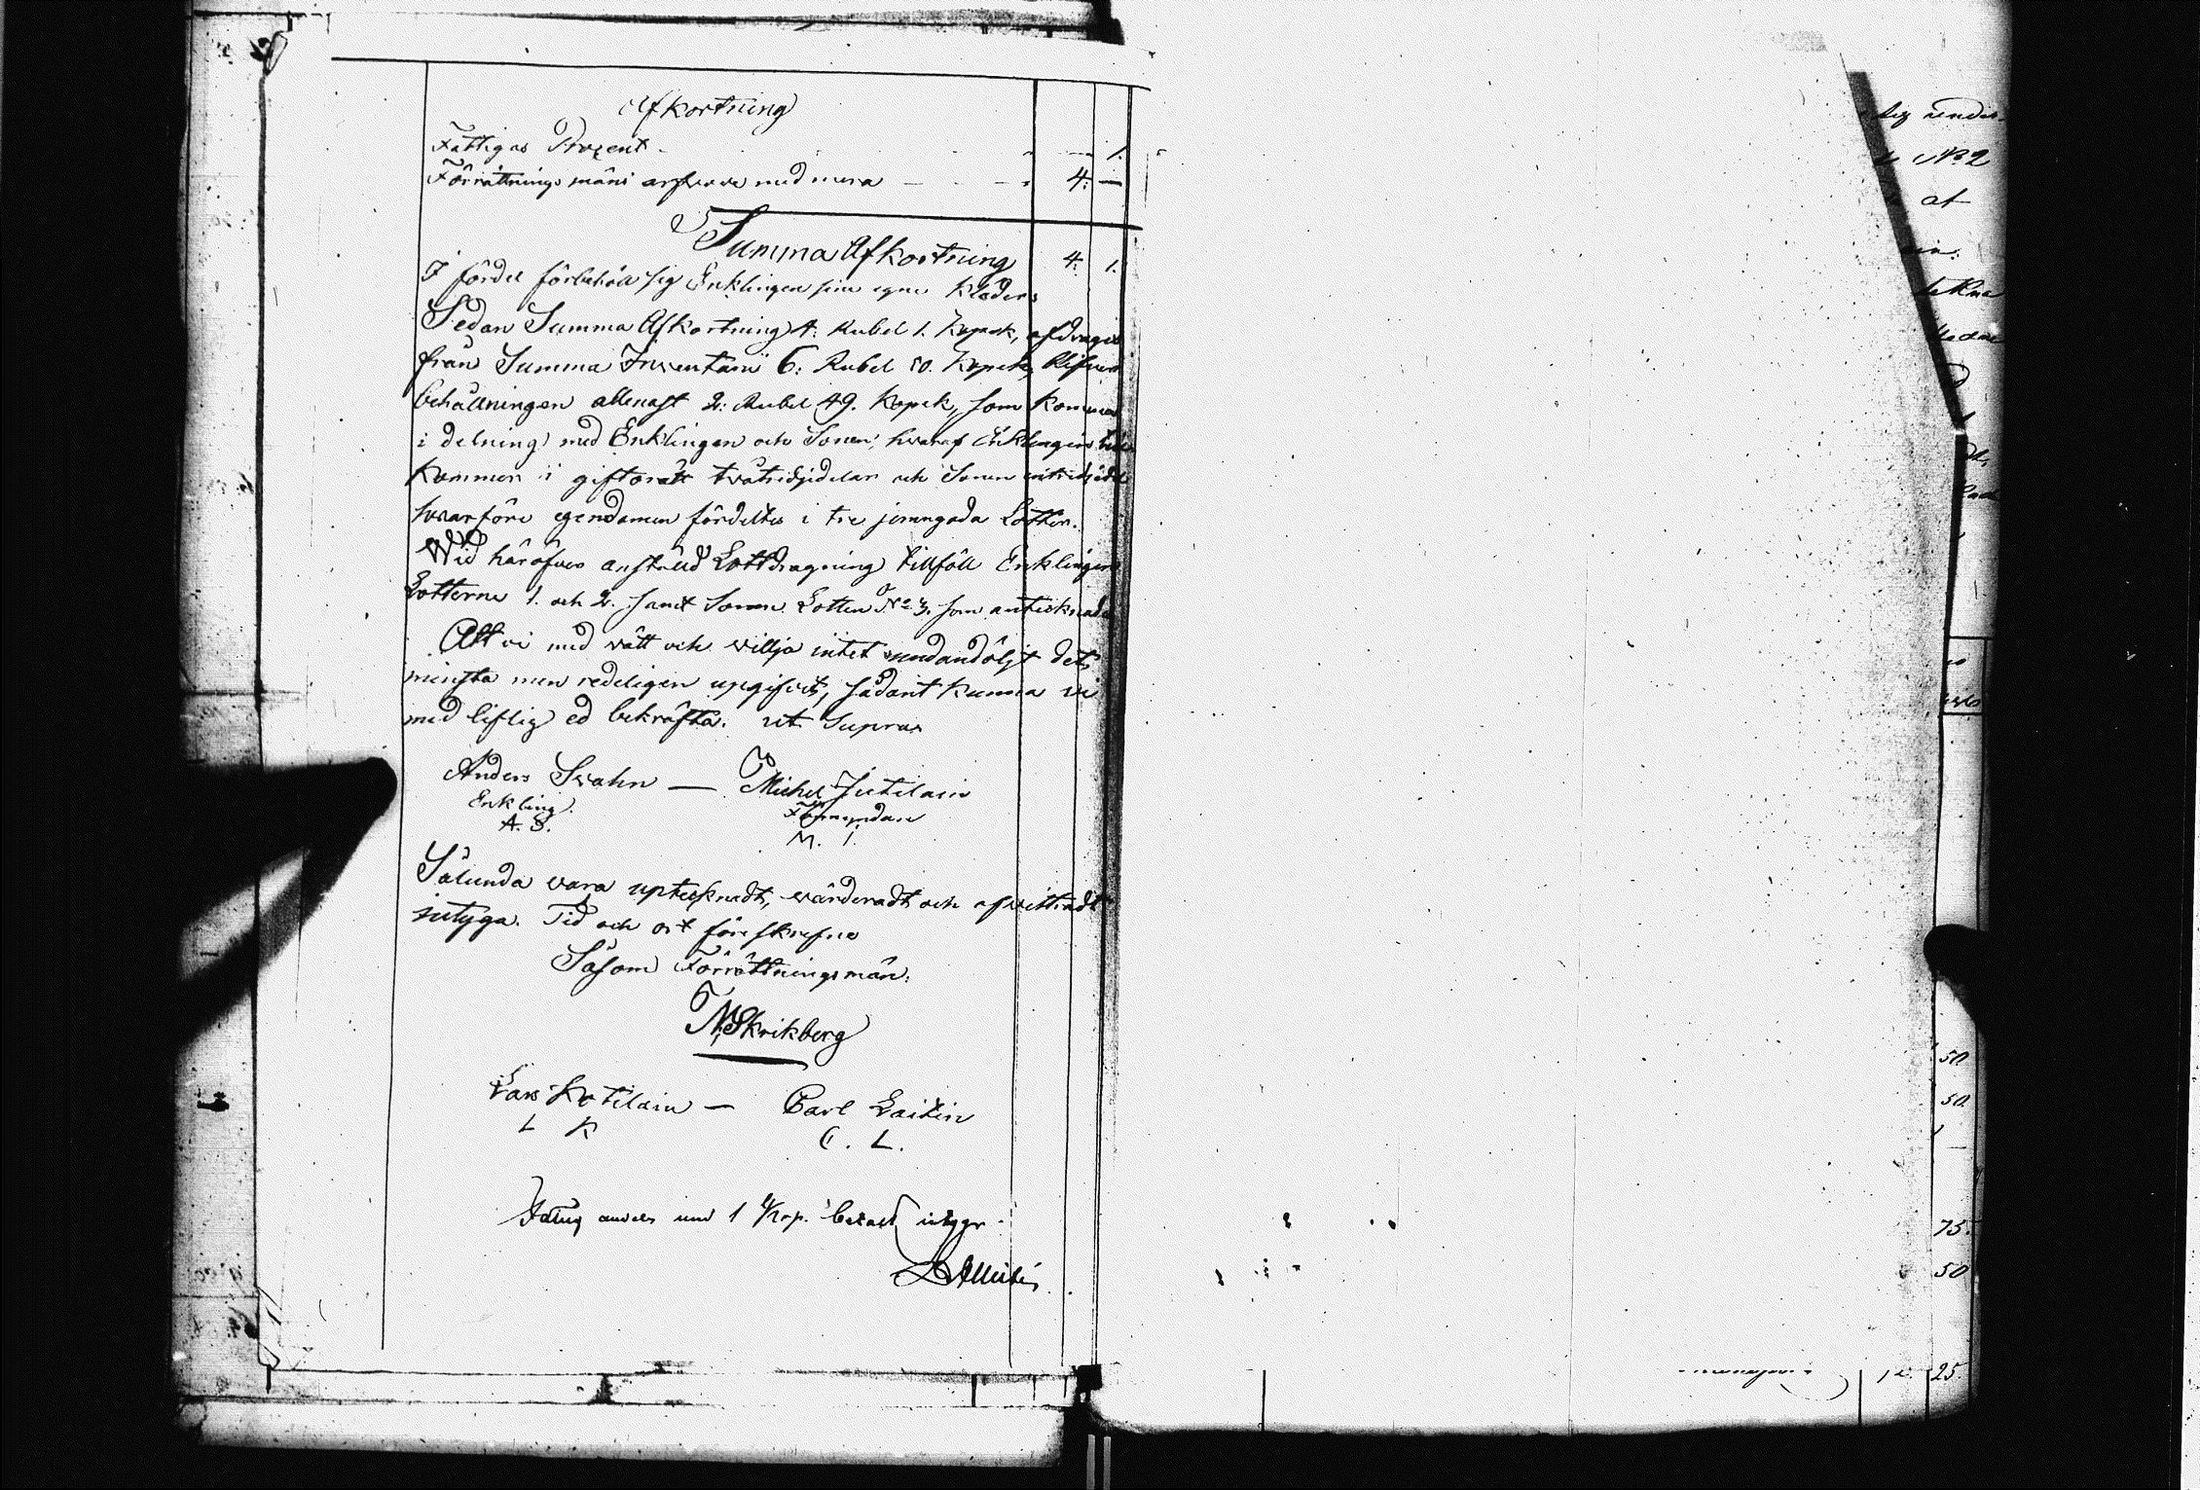 Afkortning
Fattigas Prozent - - - 1.
Förrättningsmäns arfvode med mera - - - 4. -
Summa Afkortning 4. 1.
I fördel förbehöll sig Enklingen sine egne Kläder.
Sedan Summa Afkortning 4. Rubel 1. Kopek, afdragit
från Summa Inventarii 6: Rubel 50. Kopek, blifver
behållningen allenast 2: Rubel 49. Kopek, som kommer
i delning med Enklingen och Sonen, hvaraf Enklingen till
kommer i giftorätt tvåtridjedelar och Sonen entridjedel
hvarföre egendomen fördeltes i tre jemngoda Lotter.
Wid häröfver anstäld Lottdragning tillföll Enklingen
Lotterne 1. och 2. samt Sonen Lotten N:o 3. som antecknades
Att vi med vätt och villja intet undandöljt det
minsta men redeligen upgifvit, sådant kunna vi
med liflig ed bekräfta. ut Supra
Anders Svahn — Michel Jutilain
Enkling Förmyndare
A. S. M. I.
Sålunda vara uptecknadt, värderadt och afvittradt
intyga. Tid och ort föreskrefne
Såsom Förrättningsmän:
N Skrikberg
Lars Kotilain — Carl Laitin
L K C. L.
Fattig andels med 1 Kop. betalt intygar